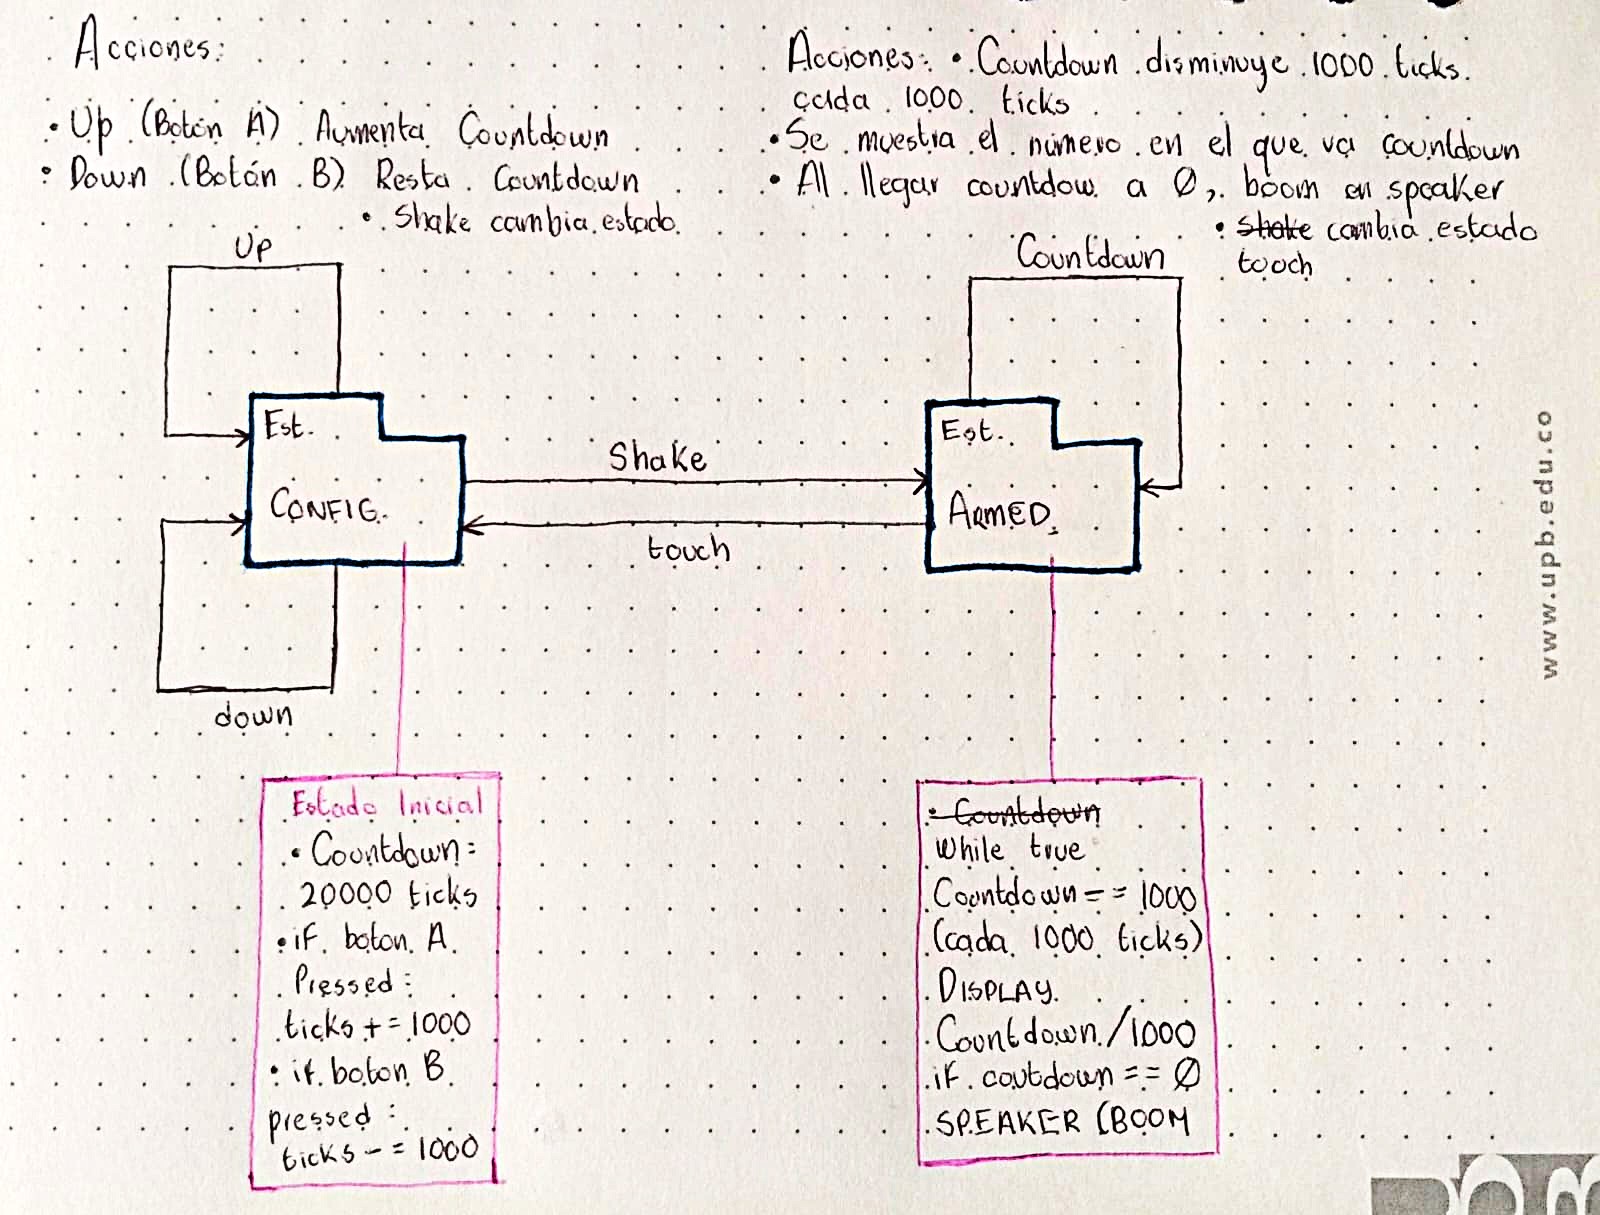 Acciones:
• Up (Botón A) Aumenta Countdown
• Down (Botón B) Resta Countdown
• Shake cambia estado.
Acciones: • Countdown disminuye 1000 ticks.
cada 1000 ticks
• Se muestra el número en el que va countdown
• Al llegar countdow a 0, boom en speaker
• Shake cambia estado
touch
Up
Countdown
Est.
CONFIG.
Shake
touch
Est.
ARMED.
down
Estado Inicial
• Countdown =
20000 ticks
• if boton A
Pressed:
ticks += 1000
• if boton B
pressed:
ticks -= 1000
• Countdown
While true
Countdown -= 1000
(cada 1000 ticks)
DISPLAY
Countdown/1000
if coutdown == 0
SPEAKER (BOOM
www.upb.edu.co